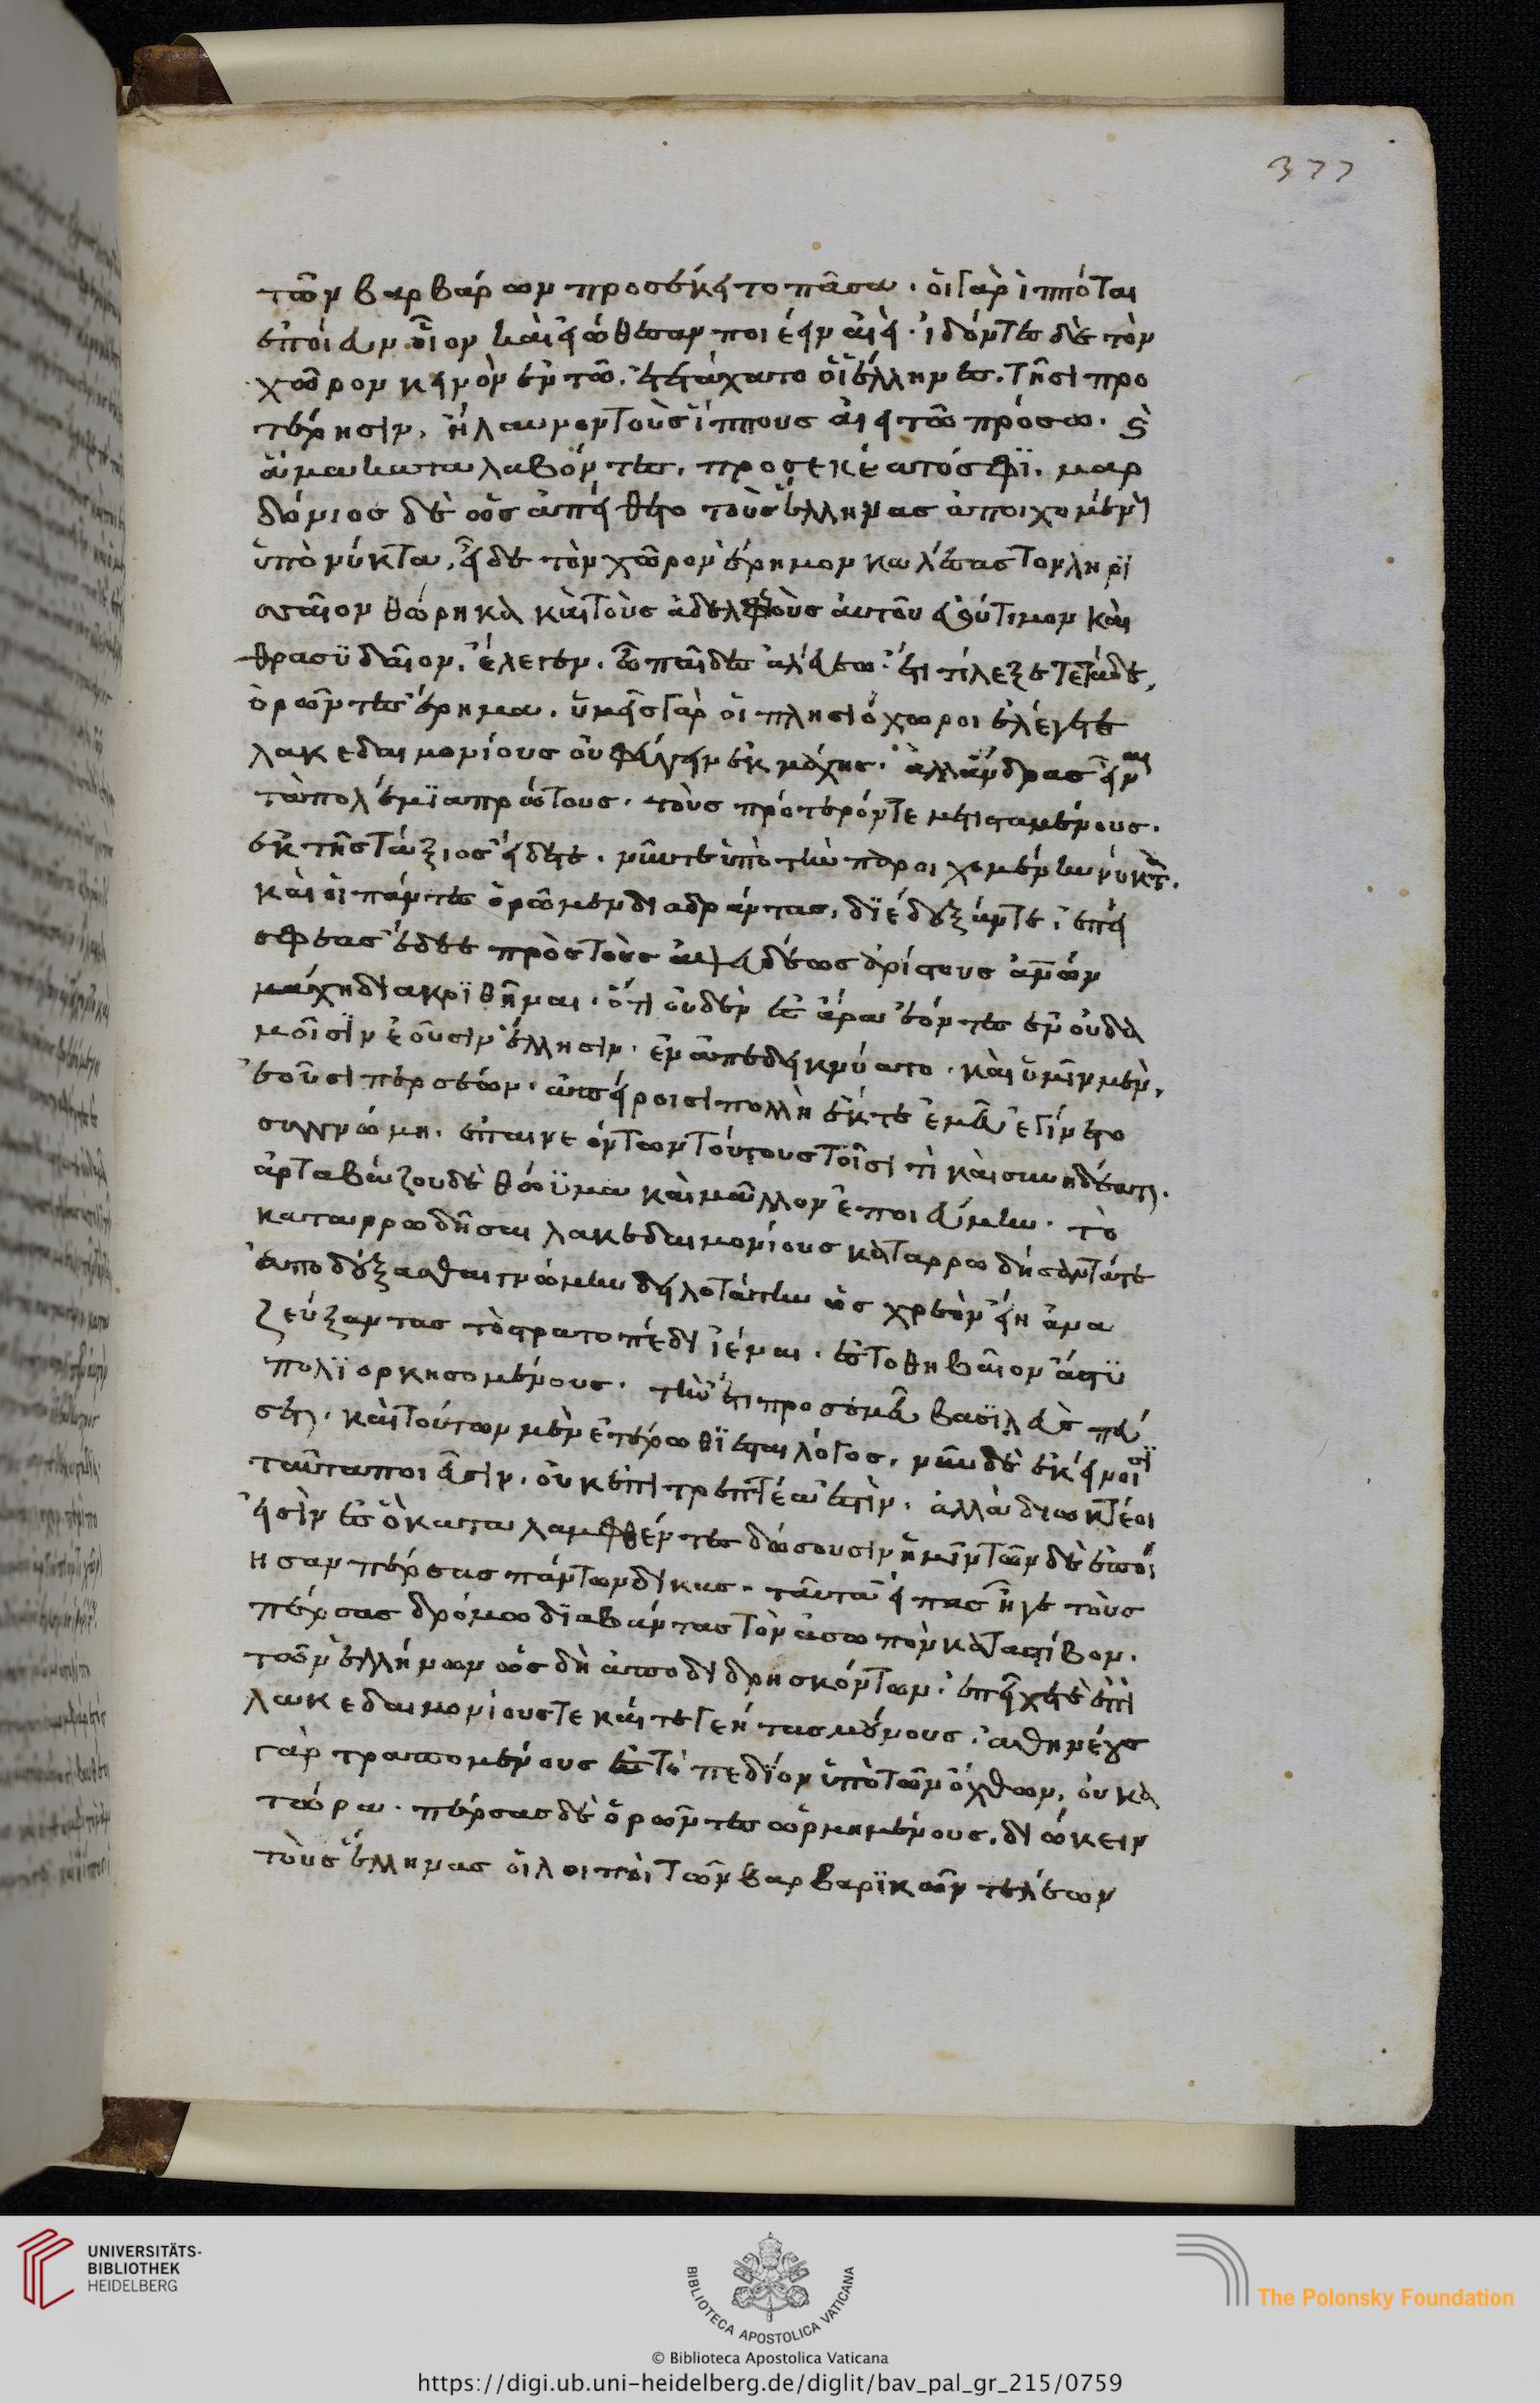 377
τῶν βαρβάρων προσέκειτο πᾶσα. οἱ γὰρ ἱππόται
ἐποίευν οἷον καὶ εἰώθεσαν ποιέειν αἰεί. ἰδόντες δὲ τὸν
χῶρον κεινὸν ἐν τῶ ἐτετάχατο οἱ ἕλληνες τῆσι προ
τέρησιν, ἤλαυνον τοὺς ἵππους αἰεὶ τὸ πρόσω. καὶ
ἅμα καταλαβόντες, προσεκέατό σφι. μαρ
δόνιος δὲ ὡς ἐπύθετο τοὺς ἕλληνας ἀποιχομένους
ὑπὸ νύκτα, εἶδέ τε τὸν χῶρον ἔρημον καλέσας τὸν ληρι
σαῖον θώρηκα καὶ τοὺς ἀδελφεοὺς αὐτοῦ εὐρύτιμον καὶ
θρασυδαῖον, ἔλεγεν. ὦ παῖδες ἀλεύεω. ἔτι τί λέξετε τάδε,
ὁρῶντες ἔρημα. ὑμεῖς γὰρ οἱ πλησιόχωροι ἐλέγετε
λακεδαιμονίους οὐ φεύγειν ἐκ μάχης. ἀλλ' ἄνδρας εἶναι
τὰ πολέμια πρώτους. τοὺς πρότερόν τε μετισταμένους
ἐκ τῆς τάξιος εἴδετε. νῦν τε ὑπὸ τὴν παροιχομένην νύκτα
καὶ οἱ πάντες ὁρῶμεν διαδράντας, διέδεξάν τε. ἐπεί
σφεας ἔδεε πρὸς τοὺς ἀψευδέως ἀρίστους ἀνθρώπων
μάχη διακριθῆναι. ὅτι οὐδένες ἄρα ἐόντες ἐν οὐδα
μοῖσιν ἐοῦσιν ἕλλησιν. ἐναπεδεικνύατο. καὶ ὑμῖν μὲν,
ἐοῦσι περσέων ἀπείροισι πολλὴ ἔκ τε ἐμεῦ ἐγίνετο
συγγνώμη. ἐπαινεόντων τούτους τοῖσί τι καὶ συνηδέατε.
ἀρταβάζου δὲ θώϋμα καὶ μᾶλλον ἐποιεύμην. τὸ
καταρρωδῆσαι λακεδαιμονίους καταρρωδήσαντά τε
ἀποδέξασθαι γνώμην δειλοτάτην ὡς χρεὸν εἴη ἀνα
ζεύξαντας τὸ στρατόπεδον ἰέναι. ἐς τὸ θηβαίων ἄστυ
πολιορκησομένους. τὴν ἔτι πρὸς ἐμεῦ βασιλεὺς πεύ
σεται. καὶ τούτων μὲν ἑτέρωθι ἔσται λόγος. νῦν δὲ ἐκείνοισι
ταῦτα ποιεῦσιν. οὐκ ἐπιτρεπτέα ἐστὶν. ἀλλὰ διωκτέοι
εἰσὶν ἐς ὃ καταλαμφθέντες δώσουσιν ἡμῖν τῶν δὲ ἐποί
ησαν πέρσας πάντων δίκας. ταῦτα εἴπας ἦγε τοὺς
πέρσας δρόμω διαβάντας τὸν ἀσωπὸν κατὰ στίβον.
τῶν ἑλλήνων ὡς δὴ ἀποδιδρησκόντων. ἐπεῖχέ τε ἐπὶ
λακεδαιμονίους τε καὶ τεγεήτας μούνους. ἀθηναίους
γὰρ τραπομένους ἐς τὸ πεδίον ὑπὸ τῶν ὄχθων, οὐ κα
τώρα. πέρσας δὲ ὁρῶντες ὡρμημένους. διώκειν
τοὺς ἕλληνας οἱ λοιποὶ τῶν βαρβαρικῶν τελέων
UNIVERSITÄTS-
BIBLIOTHEK
HEIDELBERG
BIBLIOTECA APOSTOLICA VATICANA
The Polonsky Foundation
© Biblioteca Apostolica Vaticana
https://digi.ub.uni-heidelberg.de/diglit/bav_pal_gr_215/0759